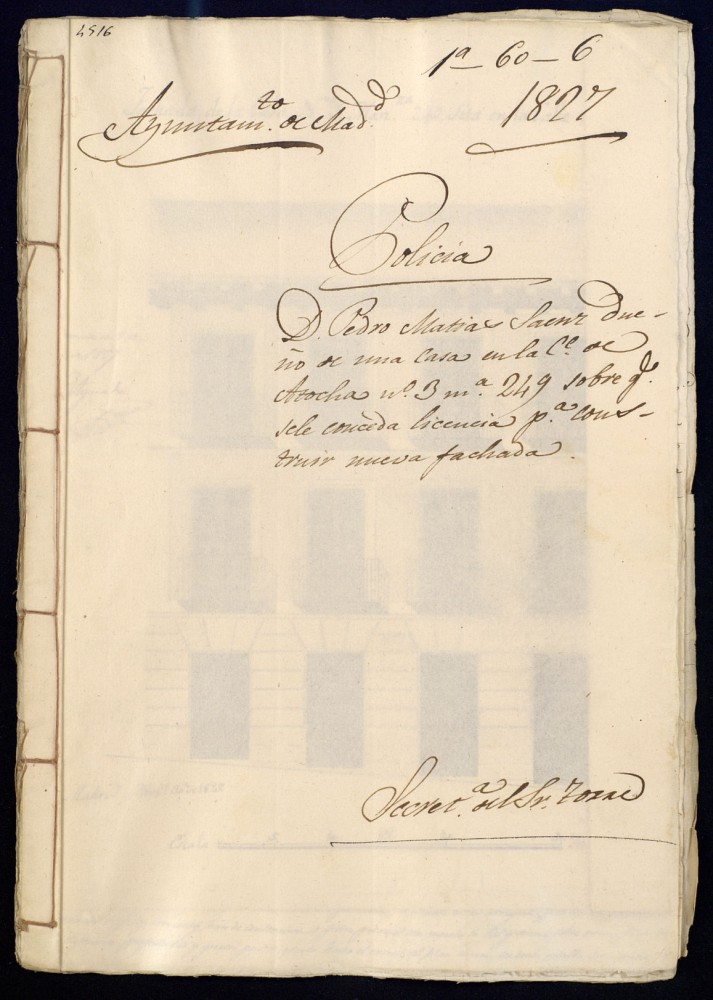 4516
1ª-60-6
Ayuntamto. de Madd.
1827
Policia
D. Pedro Matias Saenz Due-
ño de una casa en la Ce. de
Atocha nº. 3 mª. 249 sobre qe.
sele conceda licencia pª. cons-
truir nueva fachada.
Secretª. del Sr. Torre